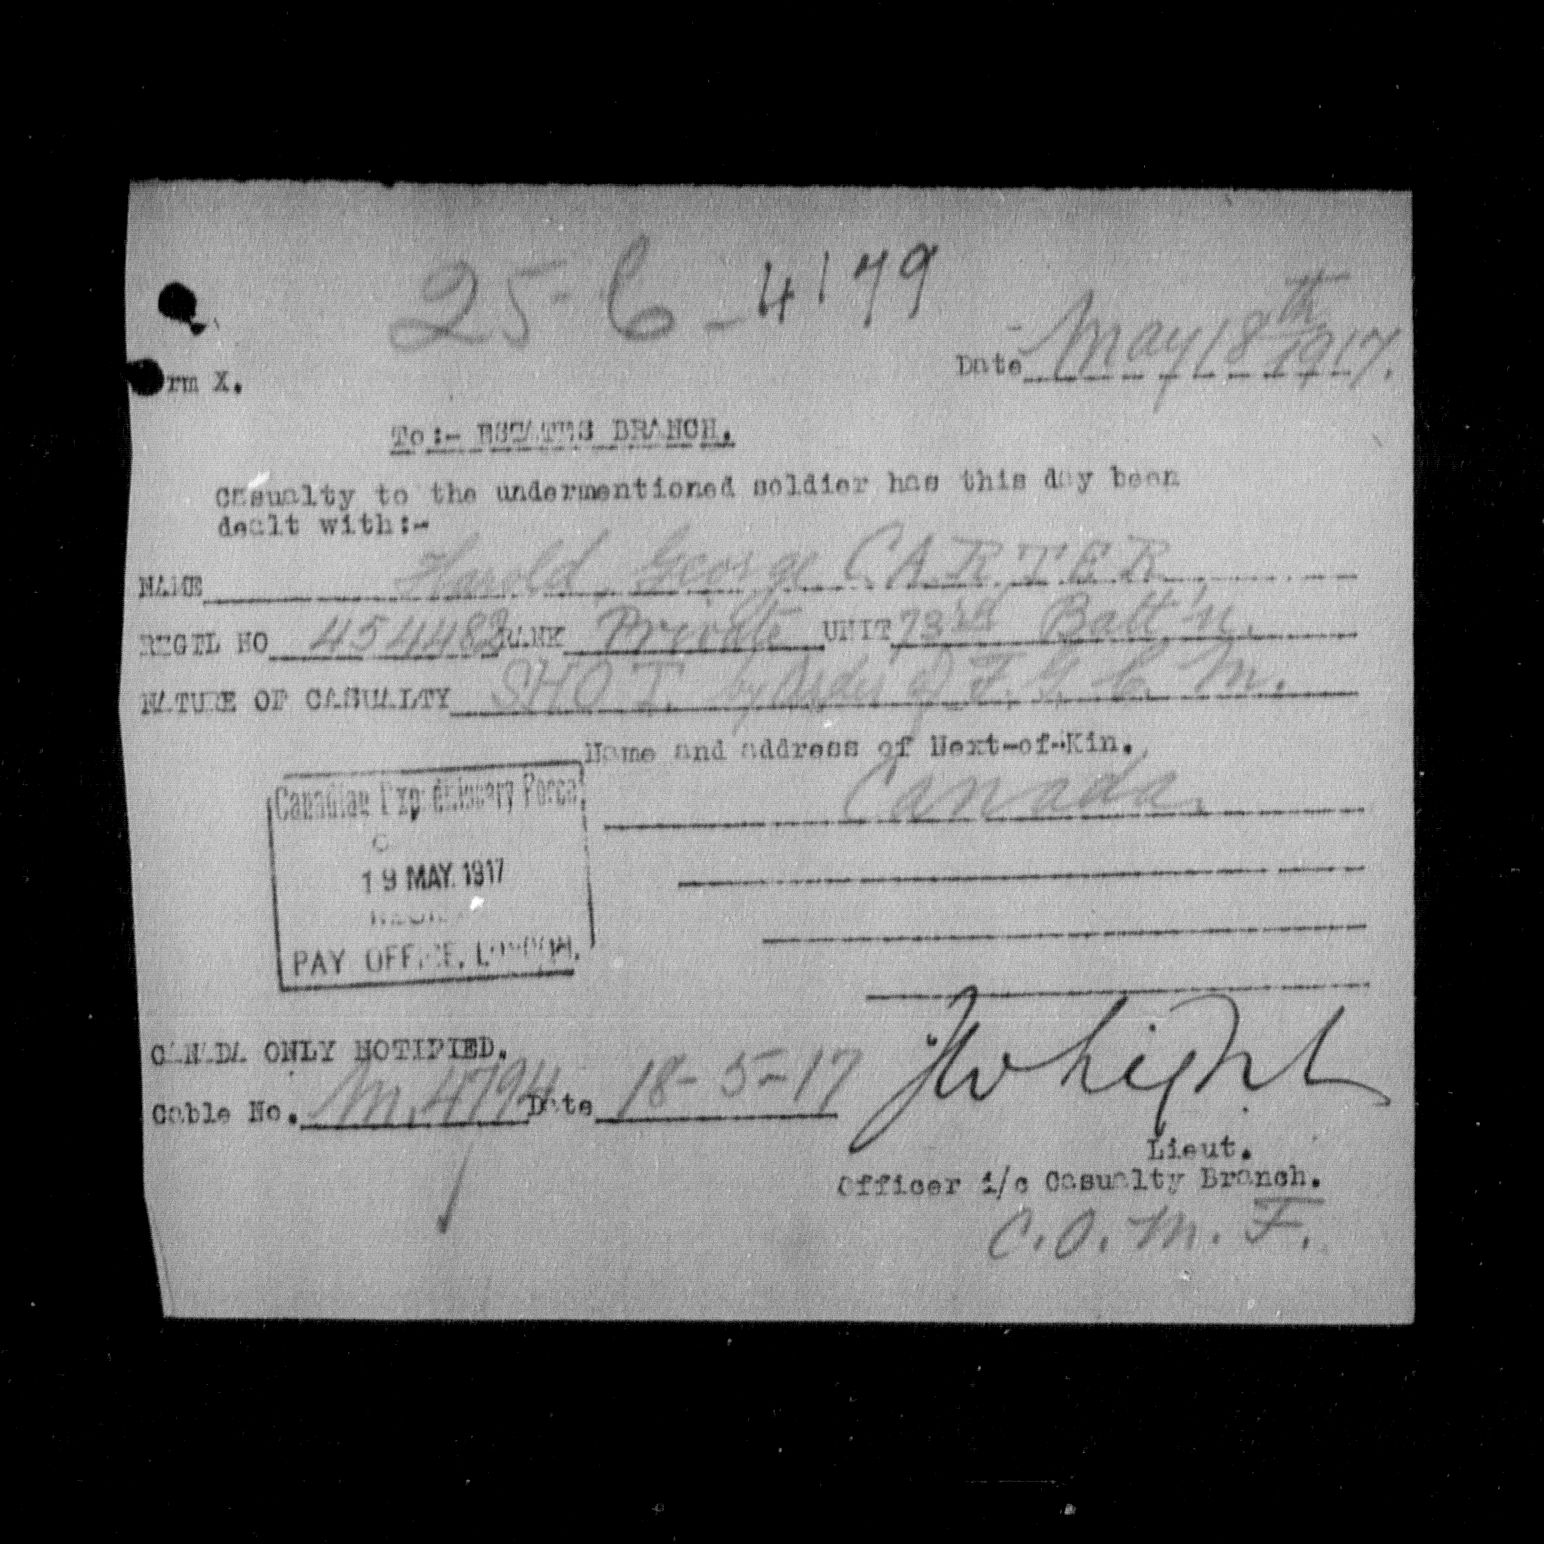 25-6-4179
Date May 18th 1917.
rm X.
To:- ESTATES BRANCH.
Casualty to the undermentioned soldier has this day been
dealt with:-
NAME Harold George CARTER
REGTL NO 454482 RANK Private UNIT 73rd Batt'n.
NATURE OF CASUALTY SHOT by Order of F.G.C.M.
Name and address of Next-of-Kin.
Canada.
Canadian Expeditionary Force
19 MAY. 1917
PAY OFFICE, LONDON.
CANADA ONLY NOTIFIED.
Cable No. M.4794 Date 18-5-17
Lieut.
Officer i/c Casualty Branch.
C.O.M.F.